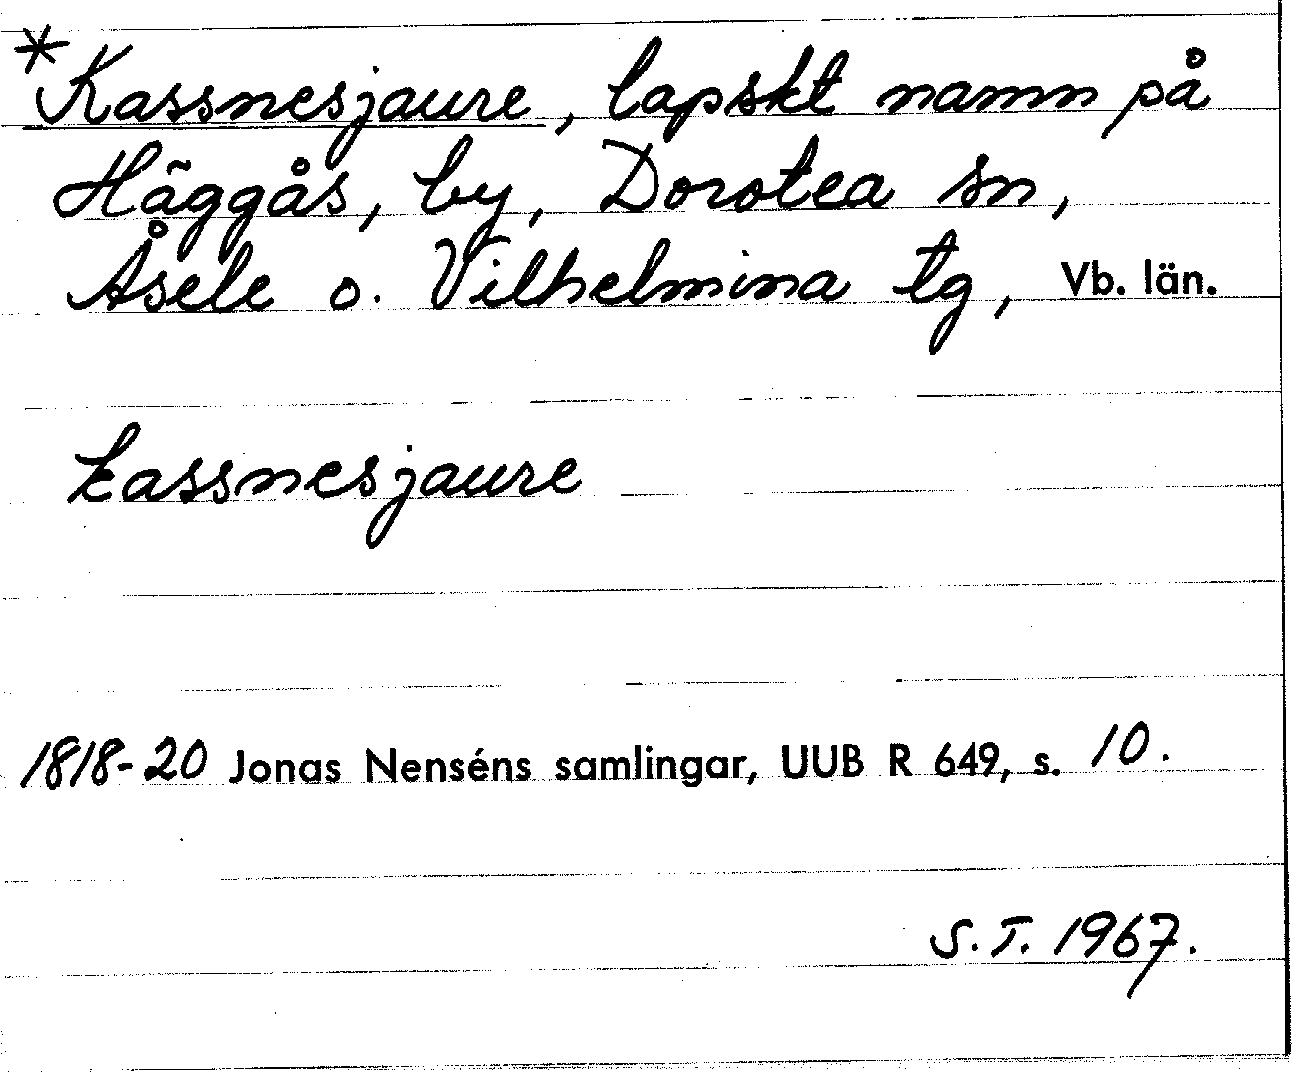 *Kassnesjaure, lapskt namn på
Häggås, by, Dorotea sn,
Åsele o. Vilhelmina tg, Vb. län.
kassnesjaure
1818-20 Jonas Nenséns samlingar, UUB R 649, s. 10.
S.T. 1967.